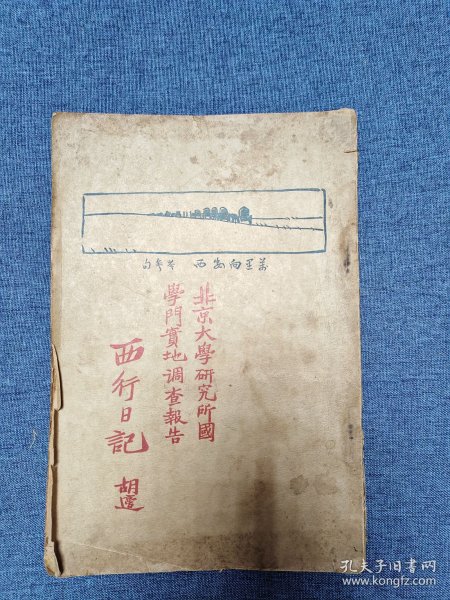 萬里向安西　岑參句
北京大學研究所國
學門實地調查報告
西行日記　胡適
孔夫子旧书网
www.kongfz.com